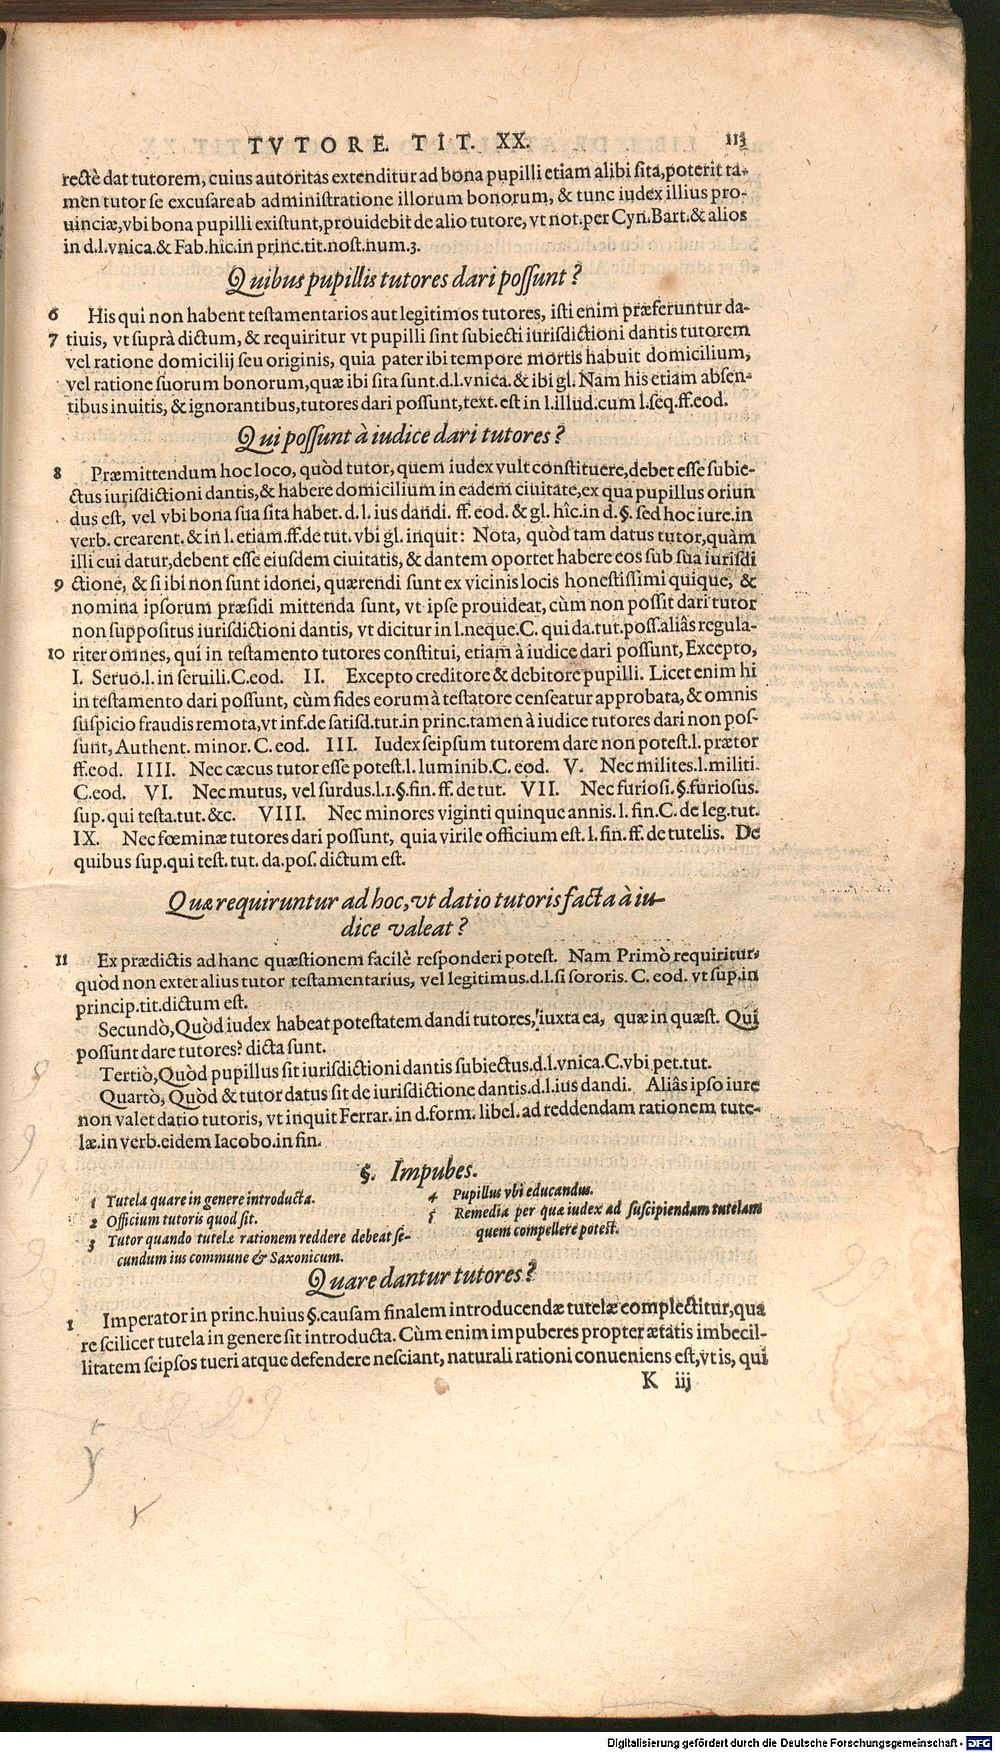 TVTORE. TIT. XX. 113
rectè dat tutorem, cuius autoritas extenditur ad bona pupilli etiam alibi sita, poterit ta-
men tutor se excusare ab administratione illorum bonorum, & tunc iudex illius pro-
uinciæ, vbi bona pupilli existunt, prouidebit de alio tutore, vt not. per Cyn. Bart. & alios
in d.l.vnica. & Fab. hîc. in princ. tit. nost. num. 3.
Quibus pupillis tutores dari possunt?
6 His qui non habent testamentarios aut legitimos tutores, isti enim præferuntur da-
7 tiuis, vt suprà dictum, & requiritur vt pupilli sint subiecti iurisdictioni dantis tutorem
vel ratione domicilij seu originis, quia pater ibi tempore mortis habuit domicilium,
vel ratione suorum bonorum, quæ ibi sita sunt. d.l.vnica. & ibi gl. Nam his etiam absen-
tibus inuitis, & ignorantibus, tutores dari possunt, text. est in l.illud. cum l.seq. ff. eod.
Qui possunt à iudice dari tutores?
8 Præmittendum hoc loco, quòd tutor, quem iudex vult constituere, debet esse subie-
ctus iurisdictioni dantis, & habere domicilium in eadem ciuitate, ex qua pupillus oriun
dus est, vel vbi bona sua sita habet. d. l. ius dandi. ff. eod. & gl. hîc. in d. §. sed hoc iure. in
verb. crearent. & in l. etiam. ff. de tut. vbi gl. inquit: Nota, quòd tam datus tutor, quàm
illi cui datur, debent esse eiusdem ciuitatis, & dantem oportet habere eos sub sua iurisdi
9 ctione, & si ibi non sunt idonei, quærendi sunt ex vicinis locis honestissimi quique, &
nomina ipsorum præsidi mittenda sunt, vt ipse prouideat, cùm non possit dari tutor
non suppositus iurisdictioni dantis, vt dicitur in l.neque. C. qui da. tut. poss. aliâs regula-
10 riter omnes, qui in testamento tutores constitui, etiam à iudice dari possunt, Excepto,
I. Seruo. l. in seruili. C. eod. II. Excepto creditore & debitore pupilli. Licet enim hi
in testamento dari possunt, cùm fides eorum à testatore censeatur approbata, & omnis
suspicio fraudis remota, vt inf. de satisd. tut. in princ. tamen à iudice tutores dari non pos-
sunt, Authent. minor. C. eod. III. Iudex seipsum tutorem dare non potest. l. prætor
ff. eod. IIII. Nec cæcus tutor esse potest. l. luminib. C. eod. V. Nec milites. l. militi.
C. eod. VI. Nec mutus, vel surdus. l. 1. §. fin. ff. de tut. VII. Nec furiosi. §. furiosus.
sup. qui testa. tut. &c. VIII. Nec minores viginti quinque annis. l. fin. C. de leg. tut.
IX. Nec fœminæ tutores dari possunt, quia virile officium est. l. fin. ff. de tutelis. De
quibus sup. qui test. tut. da. pos. dictum est.
Quæ requiruntur ad hoc, vt datio tutoris facta à iu-
dice valeat?
11 Ex prædictis ad hanc quæstionem facilè responderi potest. Nam Primò requiritur,
quòd non extet alius tutor testamentarius, vel legitimus. d.l. si sororis. C. eod. vt sup. in
princip. tit. dictum est.
Secundò, Quòd iudex habeat potestatem dandi tutores, iuxta ea, quæ in quæst. Qui
possunt dare tutores? dicta sunt.
Tertiò, Quòd pupillus sit iurisdictioni dantis subiectus. d.l.vnica. C. vbi pet. tut.
Quartò, Quòd & tutor datus sit de iurisdictione dantis. d.l. ius dandi. Aliâs ipso iure
non valet datio tutoris, vt inquit Ferrar. in d. form. libel. ad reddendam rationem tute-
læ. in verb. eidem Iacobo. in fin.
§. Impubes.
1 Tutela quare in genere introducta.
2 Officium tutoris quod sit.
3 Tutor quando tutelæ rationem reddere debeat se-
cundum ius commune & Saxonicum.
4 Pupillus vbi educandus.
5 Remedia per quæ iudex ad suscipiendam tutelam
quem compellere potest.
Quare dantur tutores?
1 Imperator in princ. huius §. causam finalem introducendæ tutelæ complectitur, qua
re scilicet tutela in genere sit introducta. Cùm enim impuberes propter ætatis imbecil-
litatem seipsos tueri atque defendere nesciant, naturali rationi conueniens est, vt is, qui
K iij
Digitalisierung gefördert durch die Deutsche Forschungsgemeinschaft - DFG